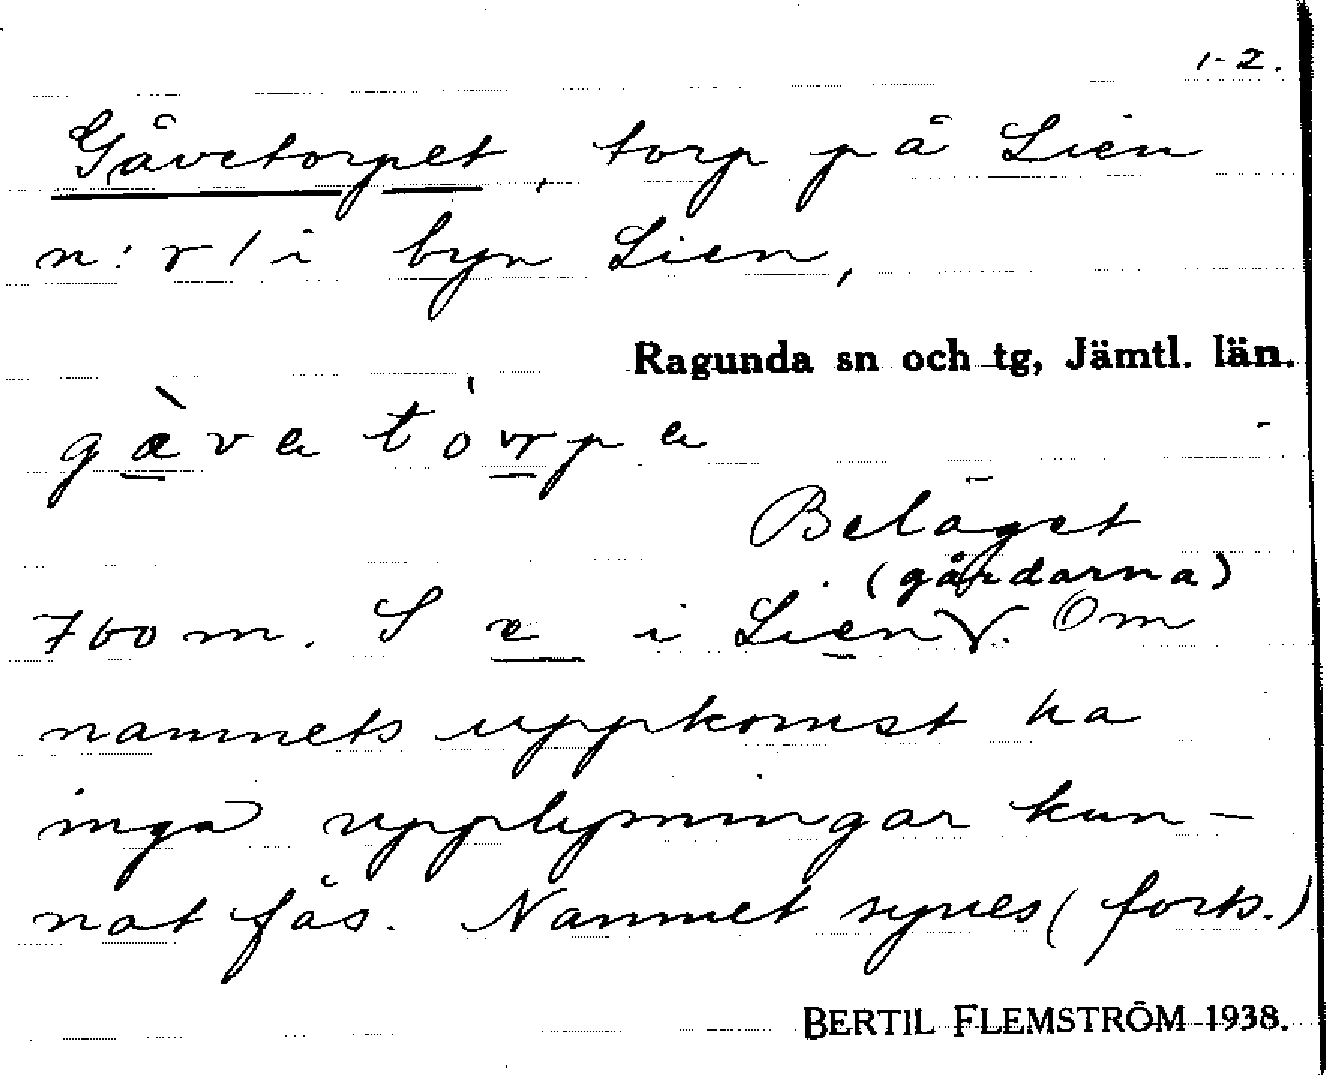 1-2.
Gåvetorpet, torp på Lien
n:r 1 i byn Lien,
Ragunda sn och tg, Jämtl. län.
Beläget
(gårdarna)
700 m. S e i Lien. Om
namnets uppkomst ha
inga upplysningar kun-
nat fås. Namnet synes (forts.)
BERTIL FLEMSTRÖM 1938.